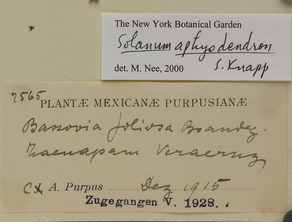 The New York Botanical Garden
Solanum aphyodendron
det. M. Nee, 2000 S. Knapp
7565
PLANTÆ MEXICANÆ PURPUSIANÆ
Bassovia foliosa Brandeg.
Zacuapam Veracruz
C. A. Purpus Dez 1915
Zugegangen V. 1928.